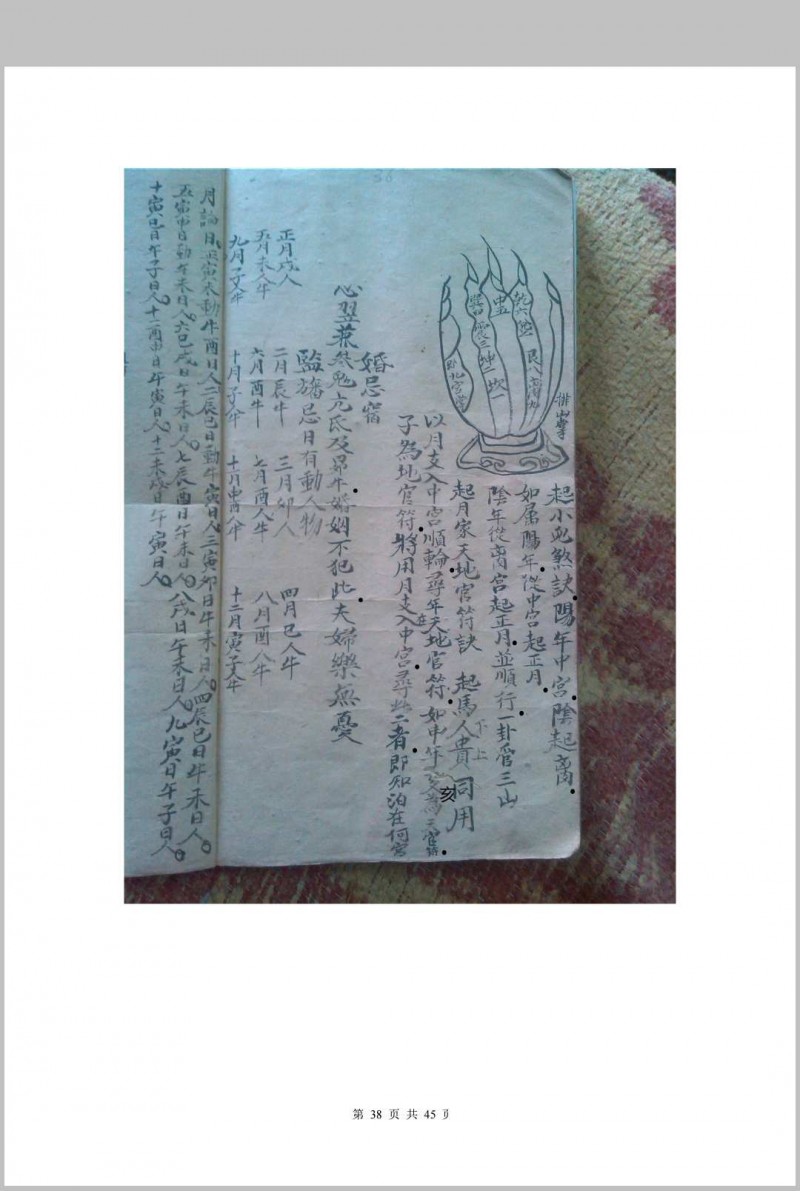 排山掌
乾六
中五
巽四
震三
坤二
坎一
離九宮
艮八
起小兒煞訣陽年中宮陰起离
如屬陽年從中宮起正月
陰年從离宮起正月並順行一卦管三山
起月家天地官符訣 起馬人貴同用
下上
以月支入中宮順輪尋年天地官符在 如申年亥為天官符
子為地官符將用月支入中宮尋此二者即知泊在何宮
婚忌宿
心翌兼參鬼亢氐及昴牛婚姻不犯此夫婦樂無憂
監旙忌日有動人物
正月戌人 二月辰牛 三月卯人 四月巳人牛
五月未人牛 六月酉牛 七月酉人牛 八月酉人牛
九月子丈牛 十月子牛 十一月申酉人牛 十二月寅子丈牛
月論日正寅未動牛酉日人二辰巳日動牛寅日人三寅卯日午未日人四辰巳日牛未日人
五寅申日動牛未日人六巳戌日午未日人七辰酉日午未日人八戌日午未日人九寅日午子日人
十寅巳日午子日人十一酉申日午寅日人十二未戌日午寅日人
第 38 页 共 45 页